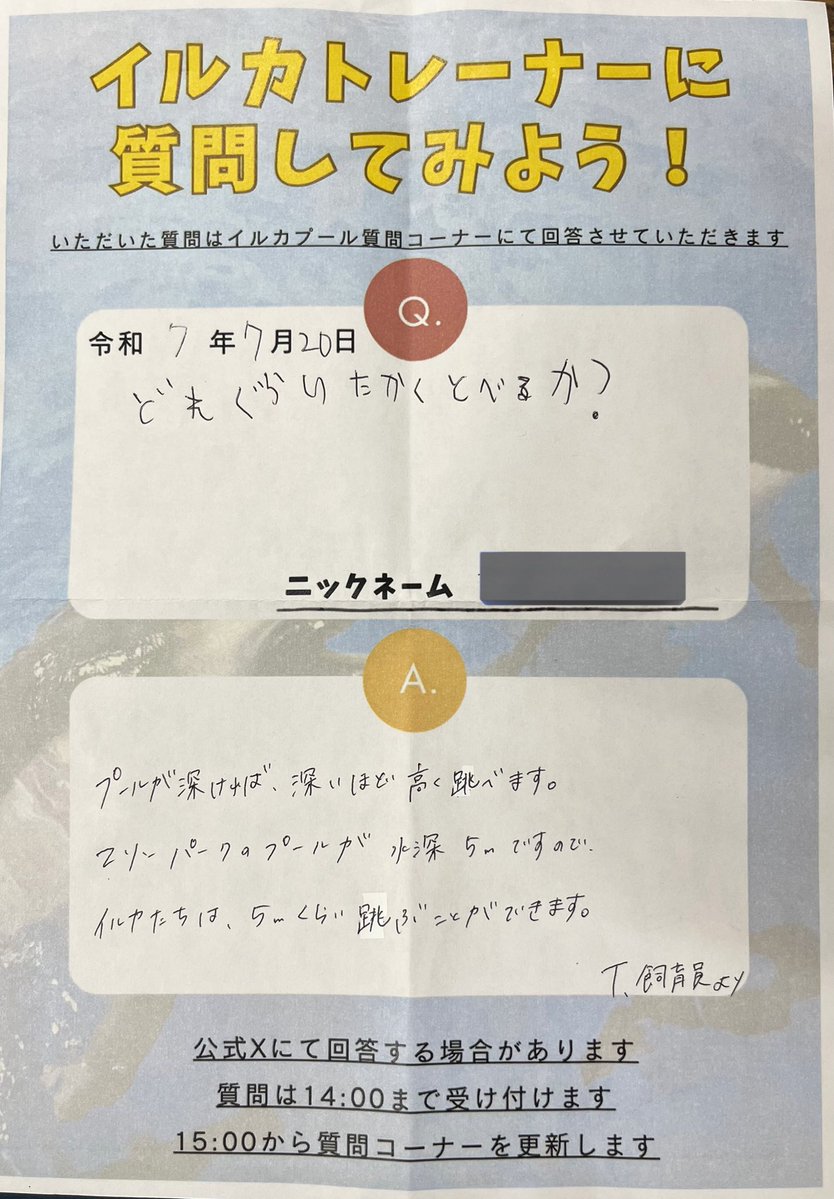 イルカトレーナーに
質問してみよう！
いただいた質問はイルカプール質問コーナーにて回答させていただきます
Q.
令和 7 年 7月20日
どれぐらいたかくとべるか？
ニックネーム
A.
プールが深ければ、深いほど高く跳べます。
マリンパークのプールが水深5mですので、
イルカたちは、5mくらい跳ぶことができます。
T.飼育員より
公式Xにて回答する場合があります
質問は14:00まで受け付けます
15:00から質問コーナーを更新します